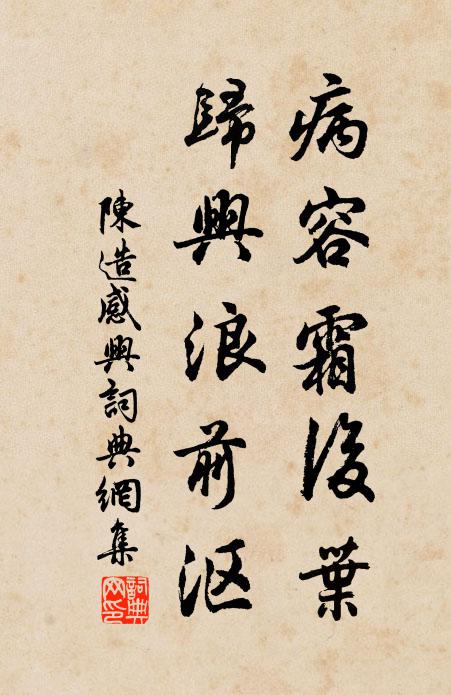 病容霜後葉
歸興浪前漚
陳造感興詞典網集
詞典
网印